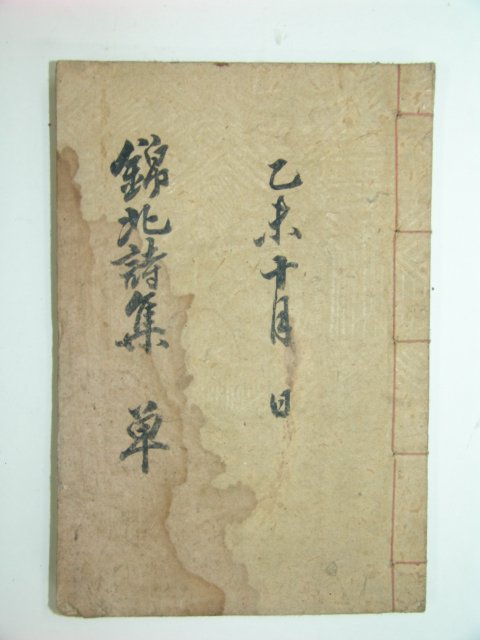 乙未十月 日
錦北詩集 單